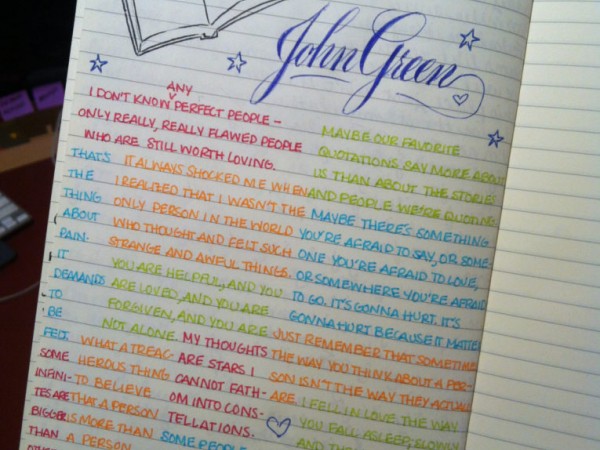 John Green
I DON'T KNOW ANY PERFECT PEOPLE –
ONLY REALLY, REALLY FLAWED PEOPLE
WHO ARE STILL WORTH LOVING.
MAYBE OUR FAVORITE
QUOTATIONS SAY MORE ABOUT
US THAN ABOUT THE STORIES
AND PEOPLE WE'RE QUOTING
THAT'S
THE
THING
ABOUT
PAIN.
IT
DEMANDS
TO
BE
FELT.
IT ALWAYS SHOCKED ME WHEN
I REALIZED THAT I WASN'T THE
ONLY PERSON IN THE WORLD
WHO THOUGHT AND FELT SUCH
STRANGE AND AWFUL THINGS.
MAYBE THERE'S SOMETHING
YOU'RE AFRAID TO SAY, OR SOME-
ONE YOU'RE AFRAID TO LOVE,
OR SOMEWHERE YOU'RE AFRAID
TO GO. IT'S GONNA HURT. IT'S
GONNA HURT BECAUSE IT MATTE
YOU ARE HELPFUL, AND YOU
ARE LOVED, AND YOU ARE
FORGIVEN, AND YOU ARE
NOT ALONE.
JUST REMEMBER THAT SOMETIM
THE WAY YOU THINK ABOUT A PER-
SON ISN'T THE WAY THEY ACTUAL
ARE.
WHAT A TREAC-
HEROUS THING
TO BELIEVE
THAT A PERSON
IS MORE THAN
A PERSON
MY THOUGHTS
ARE STARS I
CANNOT FATH-
OM INTO CONS-
TELLATIONS.
I FELL IN LOVE THE WAY
YOU FALL ASLEEP; SLOWLY
AND
SOME
INFINI-
TES ARE
BIGGER
THAN
SOME PEOPLE